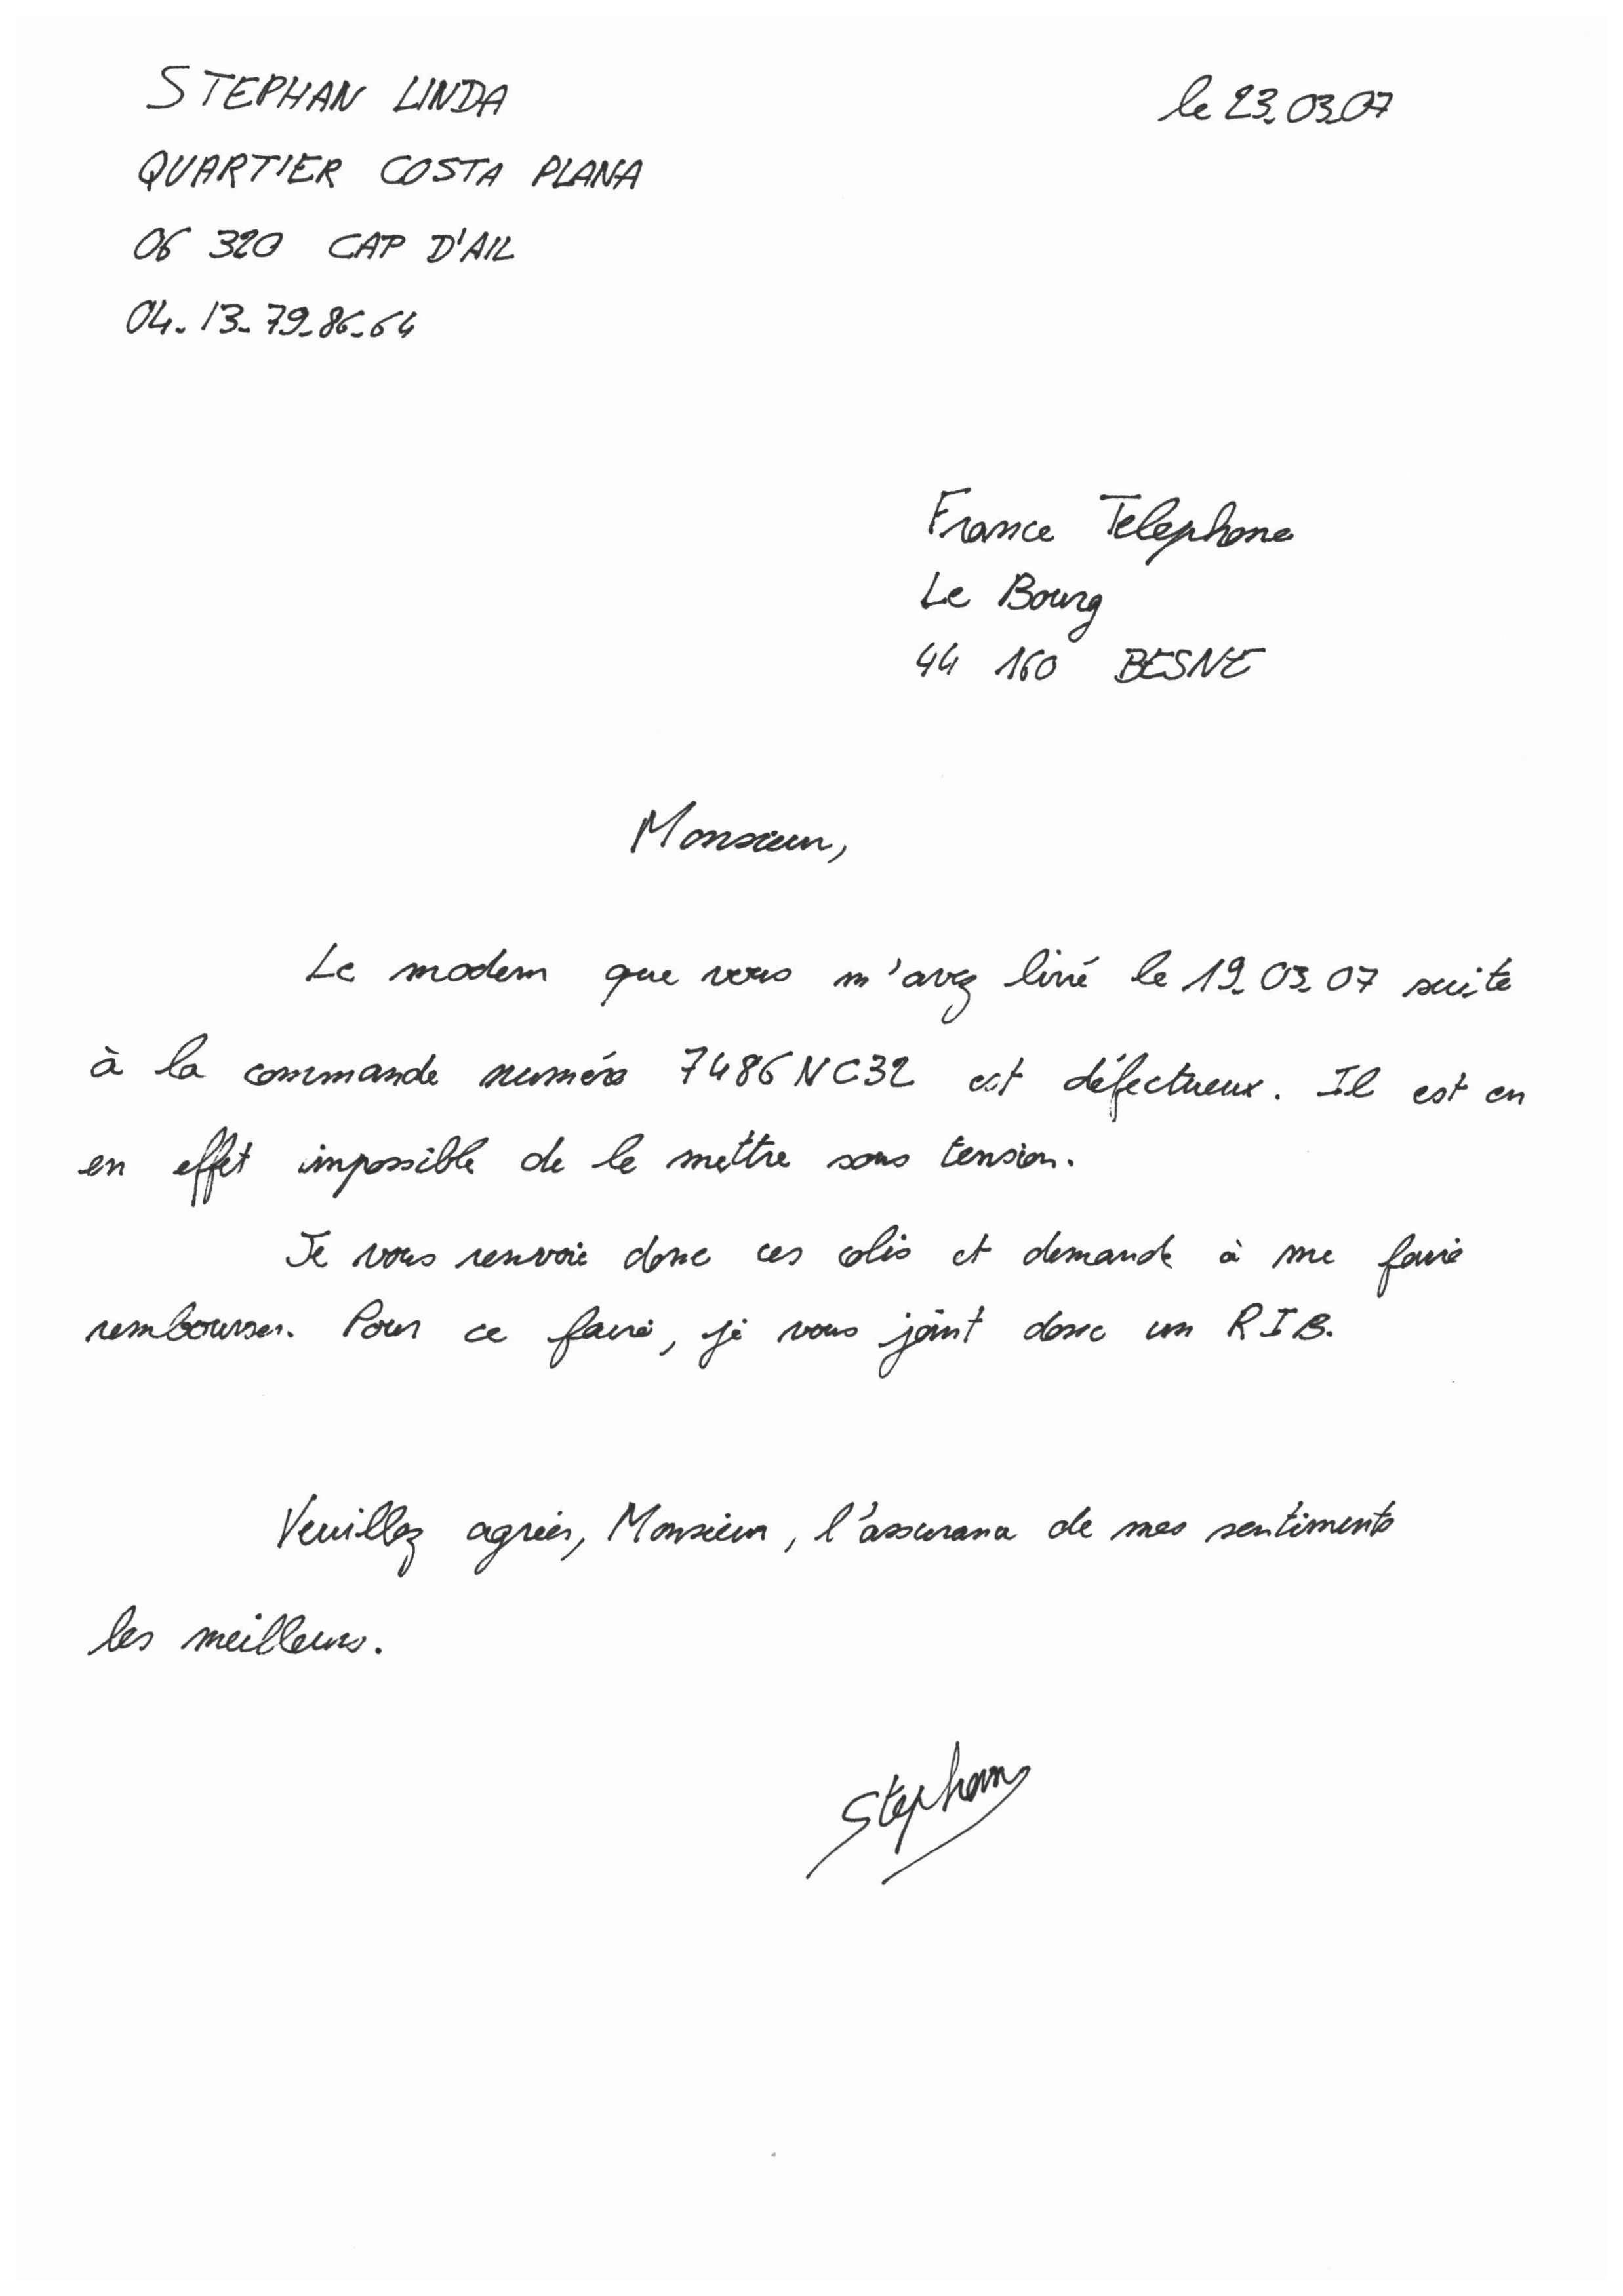 STEPHAN LINDA
le 23.03.07
QUARTIER COSTA PLANA
06 320 CAP D'AIL
04.13.79.86.64
France Telephone
Le Bourg
44 160 BESNE
Monsieur,
Le modem que vous m'avez livré le 19.03.07 suite
à la commande numéro 7486NC32 est défectueux. Il est en
en effet impossible de le mettre sous tension.
Je vous renvoie donc ces colis et demande à me faire
rembourser. Pour ce faire, je vous joint donc un RIB.
Veuillez agréer, Monsieur, l'assurance de mes sentiments
les meilleurs.
Stephan